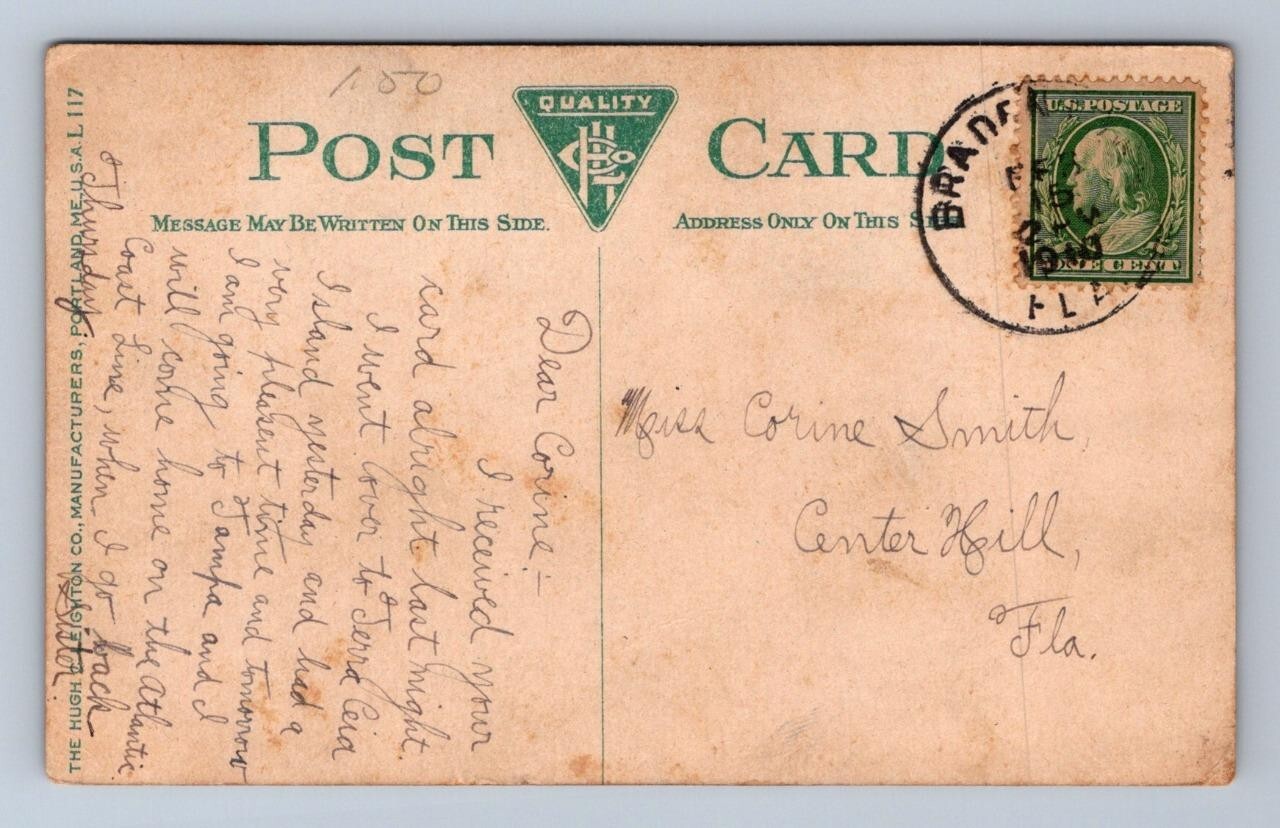 1.50
QUALITY
POST CARD
MESSAGE MAY BE WRITTEN ON THIS SIDE.
ADDRESS ONLY ON THIS SIDE
THE HUGH C. LEIGHTON CO., MANUFACTURERS, PORTLAND, ME., U.S.A. L 117
U.S. POSTAGE
ONE CENT
FLA.
1910
Dear Corine:-
I received your
card alright last night
I went over to Terra Ceia
Island yesterday and had a
very pleasent time and tomorrow
I am going to Tampa and I
will come home on the Atlantic
Coast Line, when I go back
Thursday.
Sister.
Miss Corine Smith,
Center Hill,
Fla.